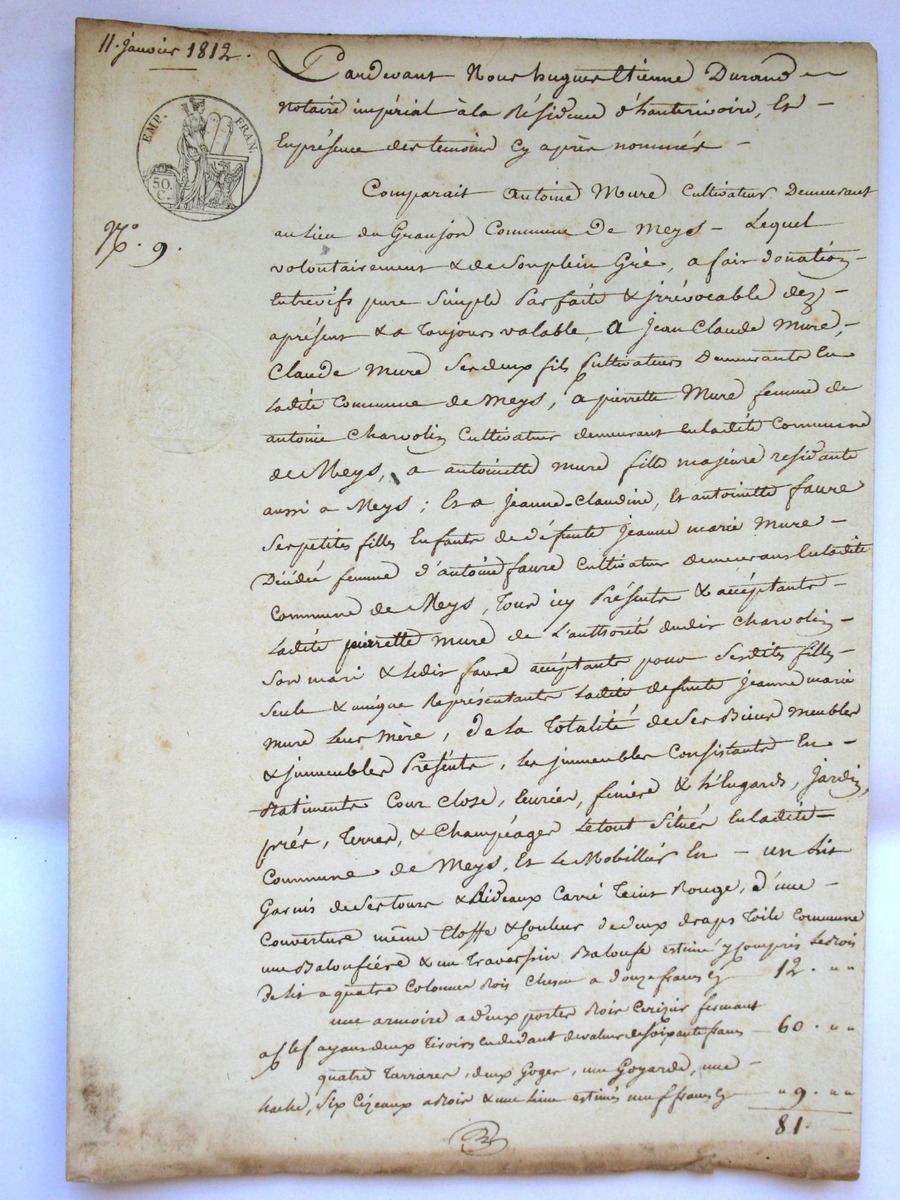 11. janvier 1812.
Pardevant Nous hugues Etienne Durand
Notaire impérial à la Résidence d'hauterivoire, Et
En présence des temoins Cy après nommés
EMP. FRAN.
50. C.
N.o 9.
Comparait Antoine Mure Cultivateur Demeurant
au lieu du Granjon Commune De Meys - Lequel
volontairement & de Son plein Gré, a fait donation
Entrevifs pure Simple Parfaite & jrrévocable dez
aprésent & a Toujours valable, A jean Claude Mure,
Claude Mure Ses deux fils Cultivateurs Demeurants En
Ladite Commune de Meys, a pierrette Mure femme de
antoine Charvolin Cultivateur demeurant En ladite Commune
de Meys, a antoinette Mure fille majeure residante
aussi a Meys ; Et a jeanne-Claudine, Et antoinette faure
Ses petites filles Enfants de défunte jeanne marie Mure
Décédée femme d'antoine faure Cultivateur demeurans En ladite
Commune de Meys, Tous icy Présents & acceptants
Ladite pierrette Mure de L'authorité dudit Charvolin
Son mari & Ledit faure acceptante pour Sesdites filles
Seule & unique Représentante Ladite défunte jeanne marie
Mure Leur Mère, de La Totalité de Ses Biens Meubles
& jmmeubles Présents, Les jmmeubles Consistants En
Batiments Cour Close, Eurier, feniere & h'Engards, jardin,
prés, Terres, & Champéages Le tout Situés En ladite
Commune de Meys, Et Le Mobillier En - un Lit
Garnis de Ses tours & Rideaux Carré Teint Rouge, d'une
Couverture même Etoffe & Couleur de deux draps Toile Commune
une Baloufière & un Traversin Baloufe estimé y Compris Le Bois
De Lit a quatre Colonnes Bois Chesne a Douze francs 12. " "
une armoire a deux portes Bois Cerisier fermant
a Clef ayans deux Tiroirs En dedant de valeur de Soixante francs - 60. " "
quatre Tarrares, deux Goges, une Goyarde, une
hache, Six Cizeaux a Bois & une Lime estimés neuf francs " 9. " "
81.